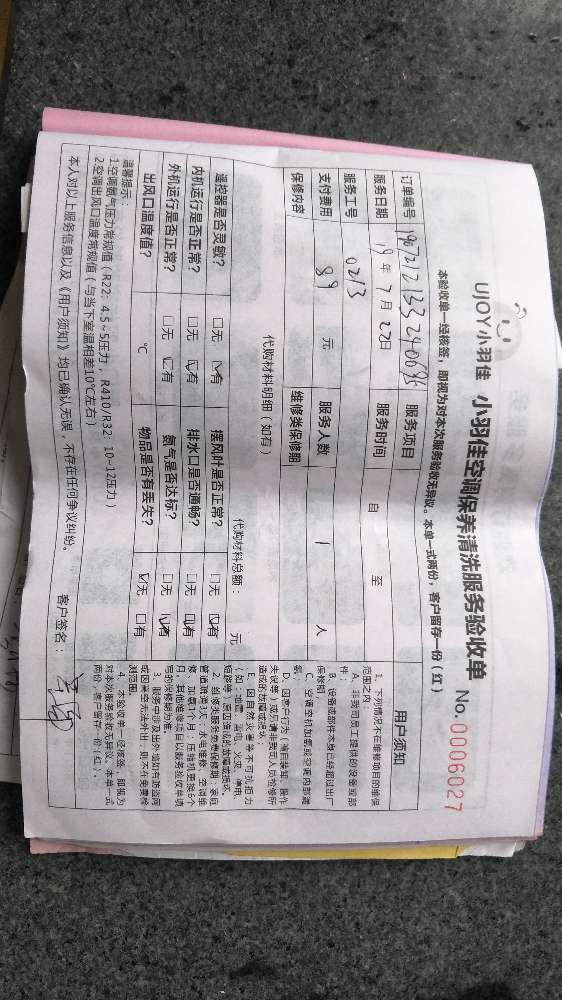 UJOY小羽佳 小羽佳空调保养清洗服务验收单 No. 0006027
本验收单一经核签，即视为对本次服务验收无异议。本单一式两份，客户留存一份（红）
订单编号 服务项目
服务日期 19年7月22日 服务时间 自 至
服务工号 0213
支付费用 89 元 服务人数 1 人
保修内容 维修类保修期
代购材料明细（如有）
代购材料总额： 元
遥控器是否灵敏？ □无 ☑有 摆风叶是否正常？ □无 ☑有
内机运行是否正常？ □无 ☑有 排水口是否通畅？ □无 ☑有
外机运行是否正常？ □无 ☑有 氨气是否达标？ □无 ☑有
出风口温度值？ ℃ 物品是否有丢失？ ☑无 □有
温馨提示：
1.空调氨气压力常规值（R22：4.5~5压力，R410/R32：10~12压力）
2.空调出风口温度常规值（与当下室温相差10℃左右）
本人对以上服务信息以及《用户须知》均已确认无误，不存在任何争议纠纷。 客户签名：
用户须知
1、下列情况不在维修项目的维保
范围之内
A、非我司员工提供的设备或部
件；
B、设备或部件本身已经超过出厂
保修期；
C、空调空机加氨或空调内部漏
氨；
D、因客户行为（擅自装卸、操作
失误等）或见请非我司人员检修所
造成的故障或损坏；
E、因自然灾害等不可抗拒力
（如：地震、雷电、火灾、爆电、
短路等）原因造成的故障或损坏
2、维修类服务免费保修期：家庭
管道疏通3天，水电维修、空调维
修、加氨1个月；压缩机更换6个
月；其他维修项目以服务验收单填
写的保修期为准。
3、服务中涉及出外墙如有防盗网
或因高空无法外出，则不在免费检
测范围
4、本验收单一经核签，即视为
对本次服务验收无异议。本单一式
两份，客户留存一份（红）。